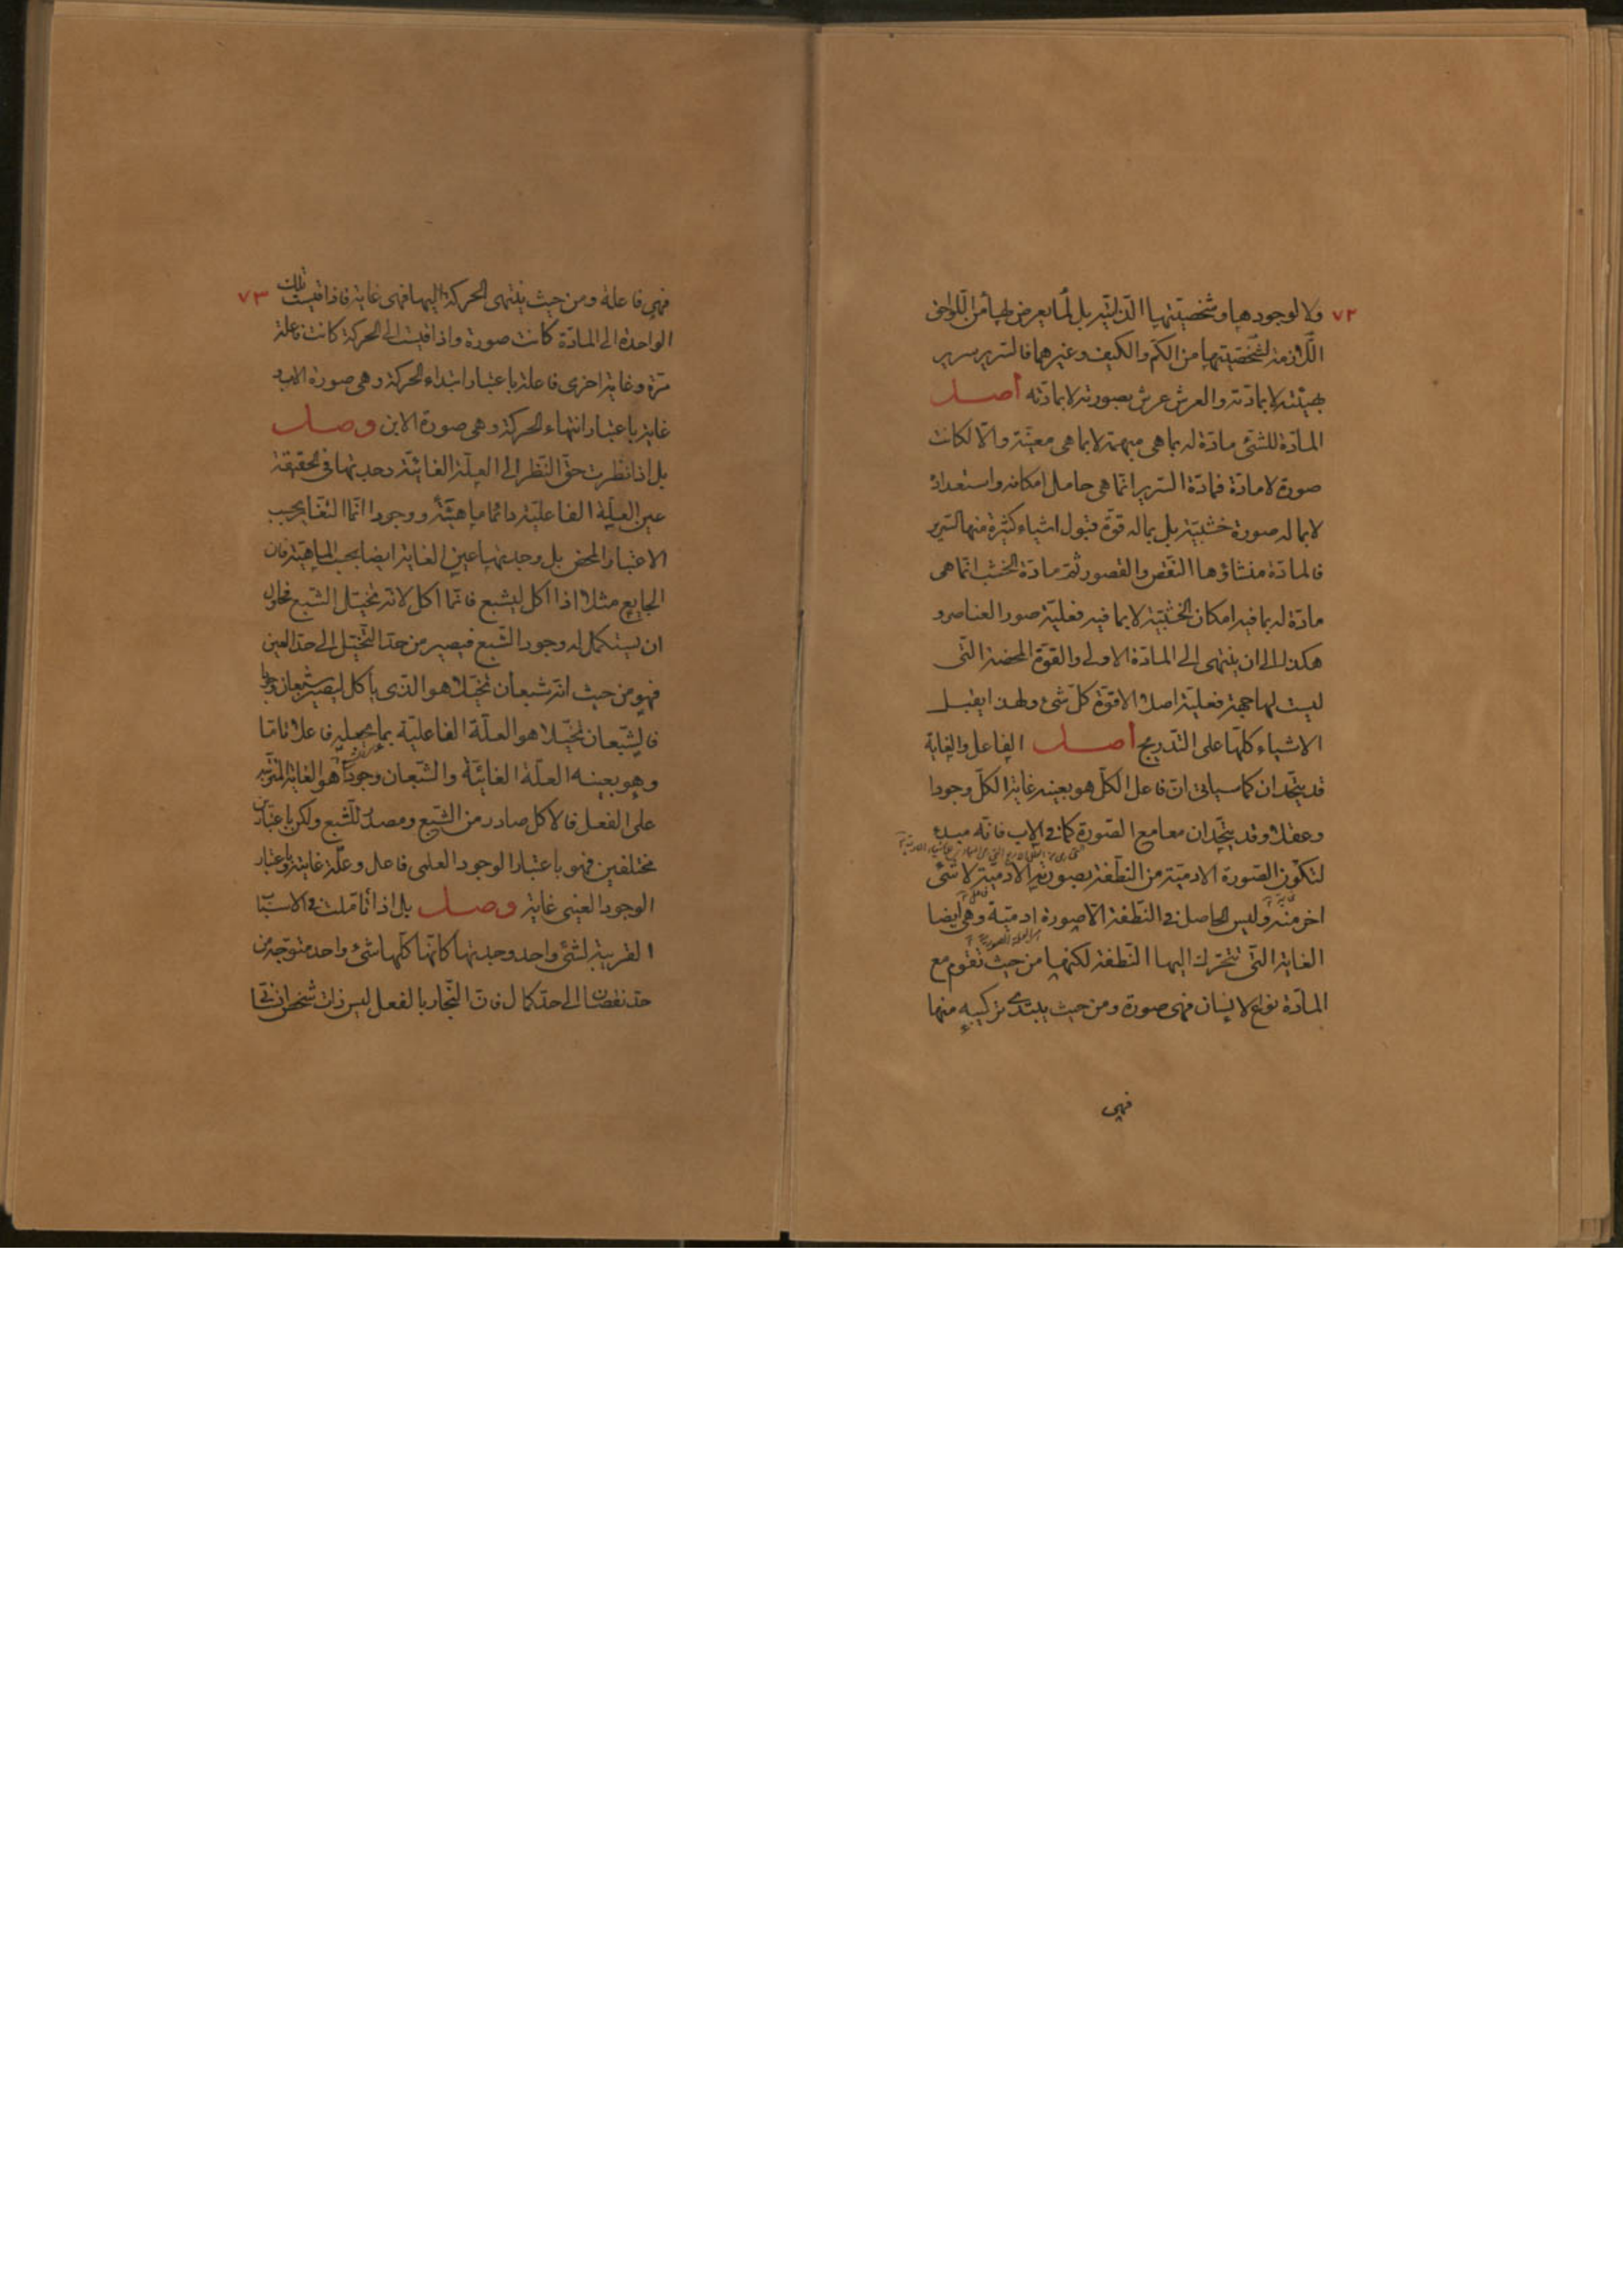 ٧٢
ولا لوجودها وشخصيتها الذاتية بل لما يعرض لها من اللواحق
اللازمة لشخصيتها من الكم والكيف وغيرهما فالسرير سرير
بهيئته لا بمادته والعرش عرش بصورته لا بمادته أصل
المادة للشئ مادة له بما هى مبهمة لا بما هى معينة والا لكانت
صورة لا مادة فمادة السرير انما هى حامل امكانه واستعداده
لا بما له صورة خشبية بل بما له قوة قبول اشياء كثيرة منها السرير
فالمادة منشاؤها النقص والقصور ثم مادة الخشب انما هى
مادة له بما فيه امكان الخشبية لا بما فيه فعلية صور العناصر و
هكذا الى ان ينتهى الى المادة الاولى والقوة المحضة التى
ليست لها جهة فعلية اصلا الا قوة كل شئ ولهذا يقبل
الاشياء كلها على التدريج أصل الفاعل والغاية
قد يتحدان كما سياتى ان فاعل الكل هو بعينه غاية الكل وجودا
وعقلا وقد يتحدان معا مع الصورة كما فى الاب فانه مبدء
لتكون الصورة الادمية من النطفة بصورته الادمية لا شئ
اخر منه وليس الحاصل فى النطفة الا صورة ادمية وهى ايضا
الغاية التى تتحرك اليها النطفة لكنها من حيث تقوم مع
المادة نوع الانسان فهى صورة ومن حيث يبتدئ تركيبه منها
فهى
٧٣
فهى فاعلة ومن حيث ينتهى الحركة اليها فهى غاية فاذا قيست تلك
الواحدة الى المادة كانت صورة واذا قيست الى الحركة كانت فاعلة
مرة وغاية اخرى فاعلة باعتبار ابتداء الحركة وهى صورة الاب و
غاية باعتبار انتهاء الحركة وهى صورة الابن وصل
بل اذا نظرت حق النظر الى العلة الغائية وجدتها فى الحقيقة
عين العلة الفاعلية دائما ماهية ووجودا انما التغاير بحسب
الاعتبار المحض بل وجدتها عين الغاية ايضا بحسب الماهية فان
الجايع مثلا اذا اكل ليشبع فانما اكل لانه تخيل الشبع فحاول
ان يستكمل له وجود الشبع فيصير من حد التخيل الى حد العين
فهو من حيث انه شبعان تخيلا هو الذى يأكل ليصير شبعان وجودا
فالشبعان تخيلا هو العلة الفاعلية بما يجعله فاعلا تاما
وهو بعينه العلة الغائية والشبعان وجودا هو الغاية المترتبة
على الفعل فالاكل صادر من الشبع ومصدر للشبع ولكن باعتبارين
مختلفين فهو باعتبار الوجود العلمى فاعل وعلة غاية وباعتبار
الوجود العينى غاية وصل بل اذا تأملت فى الاسباب
القريبة لشئ واحد وجدتها كانها كلها شئ واحد متوجه من
حد نقصان الى حد كمال فان النجار بالفعل ليس ذات شخص انسانى